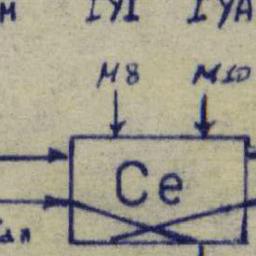 М IYI IYA
M8 M10
Ce